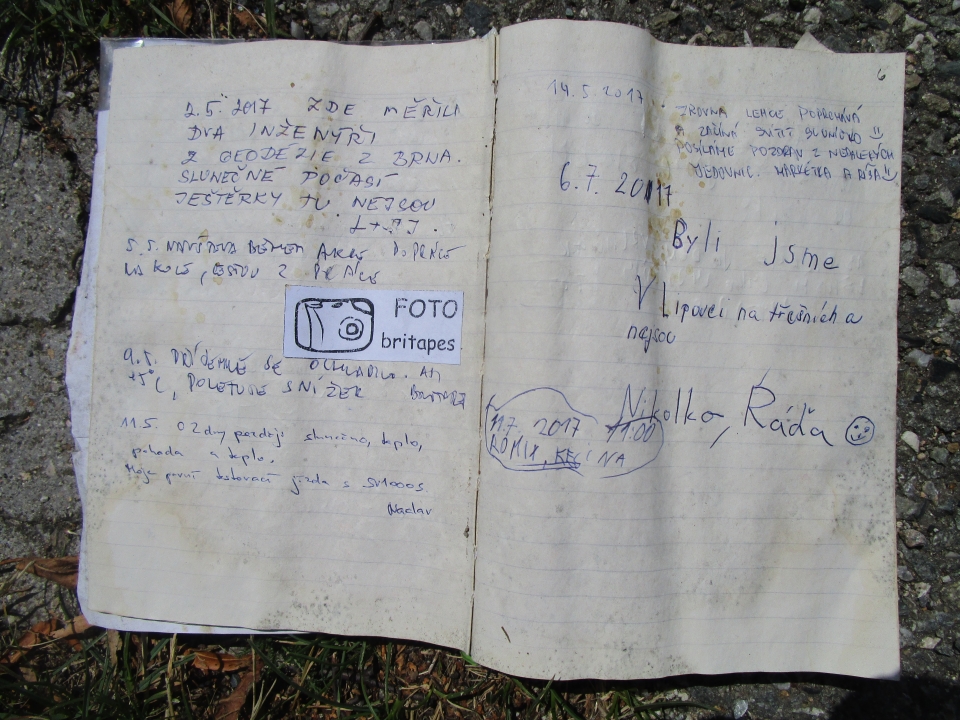 2.5. 2017 ZDE MĚŘILI
DVA INŽENÝŘI
Z GEODÉZIE Z BRNA.
SLUNEČNÉ POČASÍ
JEŠTĚRKY TU NEJSOU
5.5. NÁVŠTĚVA BĚHEM AKCE DOPRACE
NA KOLE, CESTOU Z PRÁCE
FOTO
britapes
9.5. SE OCHLADILO. AŽ
+5°C, POLETUJE SNÍŽEK
11.5. O 2 dny později slunečno, teplo,
pohoda a teplo.
Moje první testovací jízda s SV1000S.
Václav
6
14.5.2017
ZROVNA LEHCE POPRCHÁVÁ
A ZAČÍNÁ SVÍTIT SLUNÍČKO
POSÍLÁME POZDRAV Z NEDALEKÝCH
JEDOVNIC. MARKÉTKA A
6.7. 2017
Byli jsme
V Lipovci na třešních a
nejsou
Nikolka, Ráďa
11.7. 2017 11:00